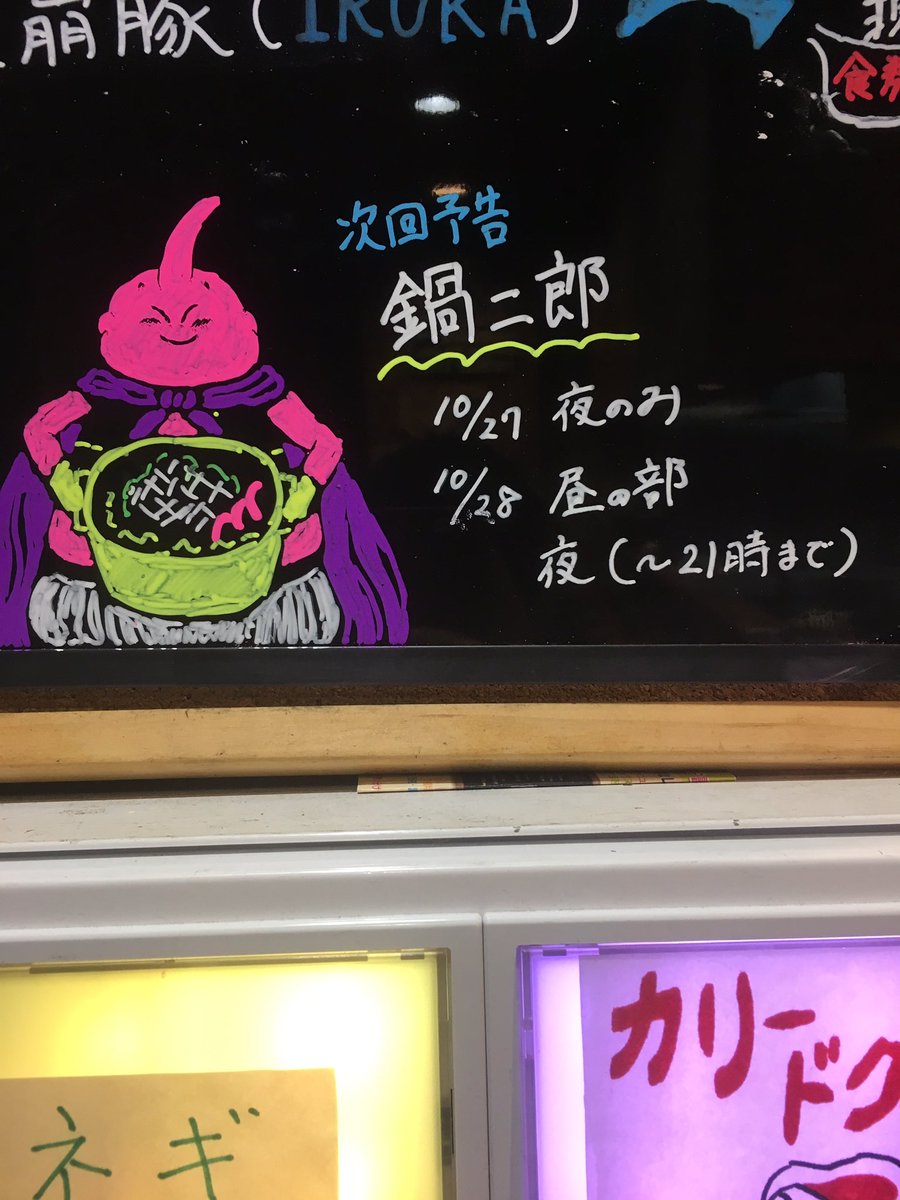 崩豚(IRUKA)
次回予告
鍋二郎
10/27 夜のみ
10/28 昼の部
夜(～21時まで)
カリー
ドク
ネギ